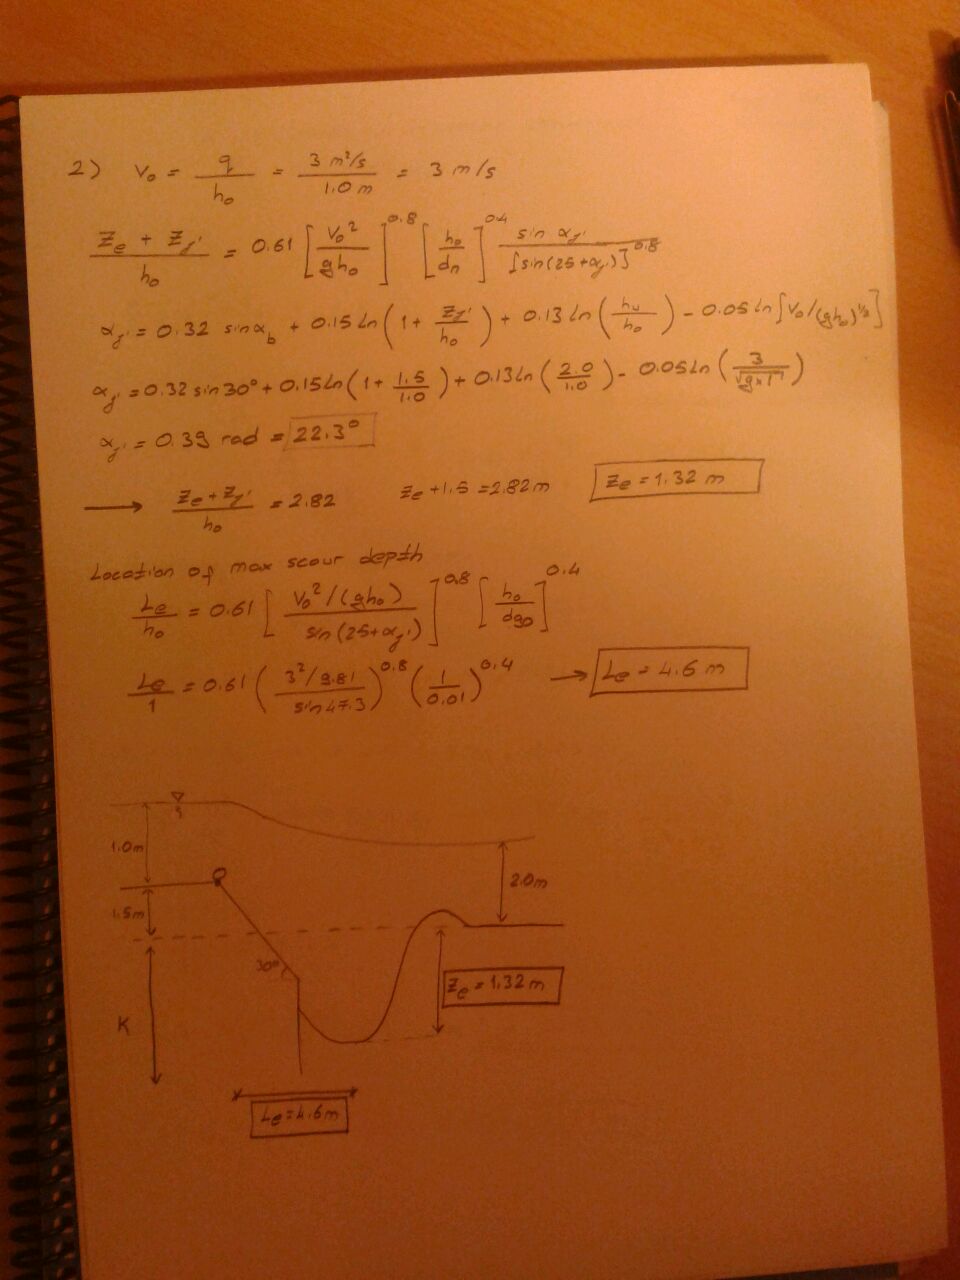 2) V₀ = q / h₀ = 3 m²/s / 1.0 m = 3 m/s
(Ze + Zj') / h₀ = 0.61 [V₀² / gh₀]^0.8 [h₀ / dn]^0.4 sin αj' / [sin(25+αj')]^0.8
αj' = 0.32 sin αb + 0.15 ln (1 + Zj' / h₀) + 0.13 ln (hu / h₀) - 0.05 ln [V₀/(gh₀)^1/2]
αj' = 0.32 sin 30° + 0.15 ln (1 + 1.5 / 1.0) + 0.13 ln (2.0 / 1.0) - 0.05 ln (3 / √g×1)
αj' = 0.39 rad = 22.3°
→ (Ze + Zj') / h₀ = 2.82 Ze + 1.5 = 2.82 m Ze = 1.32 m
Location of max scour depth
Le / h₀ = 0.61 [V₀²/(gh₀) / sin(25+αj')]^0.8 [h₀ / d90]^0.4
Le / 1 = 0.61 (3²/9.81 / sin 47.3)^0.8 (1 / 0.01)^0.4 → Le = 4.6 m
1.0m
2.0m
1.5m
30°
Ze = 1.32 m
K
Le = 4.6 m